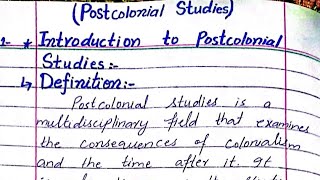 (Postcolonial Studies)
1- * Introduction to Postcolonial
Studies:-
↳ Definition:-
Postcolonial studies is a
multidisciplinary field that examines
the consequences of colonialism
and the time after it. It